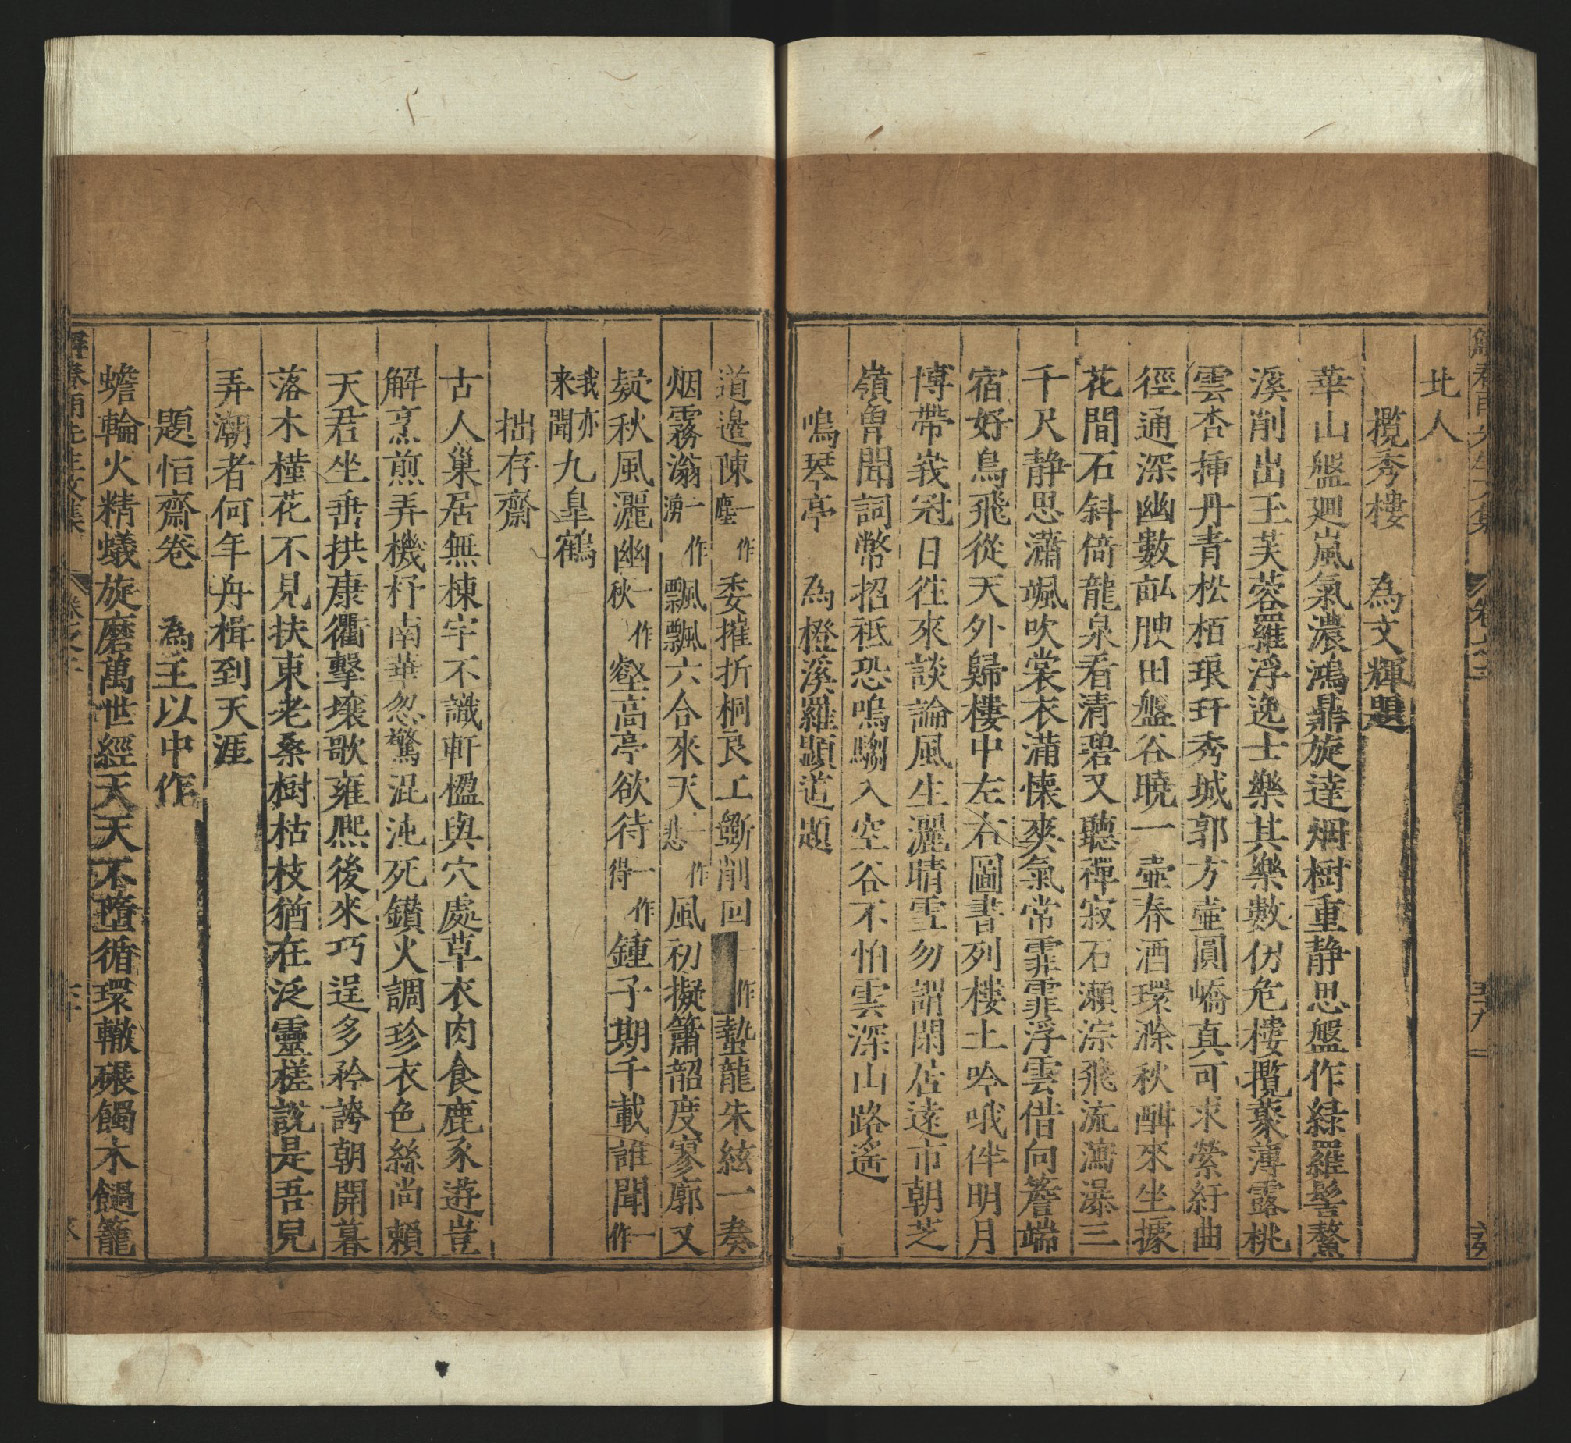 北人
攬秀樓　為文輝題
華山盤廻嵐氣濃鴻鼎旋逹烟樹重静思盤作緑羅髻鰲
溪削出玉芙蓉羅浮逸士樂其樂數仞危樓攬褎薄露桃
雲杏揷丹青松栢琅玕秀城郭方壷圓嶠真可求縈紆曲
徑通深幽數畆腴田盤谷曉一壷春酒環滁秋酣來坐據
花間石斜倚龍泉看清碧又聽禪寂石瀨淙飛流瀉瀑三
千尺静思瀟颯吹裳衣滿懐爽氣常霏霏浮雲借向簷端
宿好鳥飛從天外歸樓中左右圖書列樓上吟哦伴明月
博帶峩冠日徃來談論風生灑晴雪勿謂閑居逺市朝芝
嶺曽聞詞幣招祗恐鳴騶入空谷不怕雲深山路遙
鳴琴亭　為橙溪羅顯道題
道邉陳一作塵委摧折桐良工斵削回一作蟄龍朱絃一奏
烟霧滃一作湧飄飄六合來天一作悲風初擬簫韶度寥廓又
疑秋風灑幽一作秋壑高亭欲待一作得鍾子期千載誰聞一作
我亦来聞九臯鶴
拙存齋
古人巢居無棟宇不識軒楹與穴處草衣肉食鹿豕遊豈
解烹煎弄機杼南華忽驚混沌死鑚火調珍衣色絲尚賴
天君坐垂拱康衢擊壤歌雍熈後來巧逞多矜誇朝開暮
落木槿花不見扶東老桑樹枯枝猶在泛靈槎說是吾兒
弄潮者何年舟楫到天涯
題恒齋卷　為王以中作
蟾輪火精蟻旋磨萬世經天天不墮循環轍碾髑木䭔籠